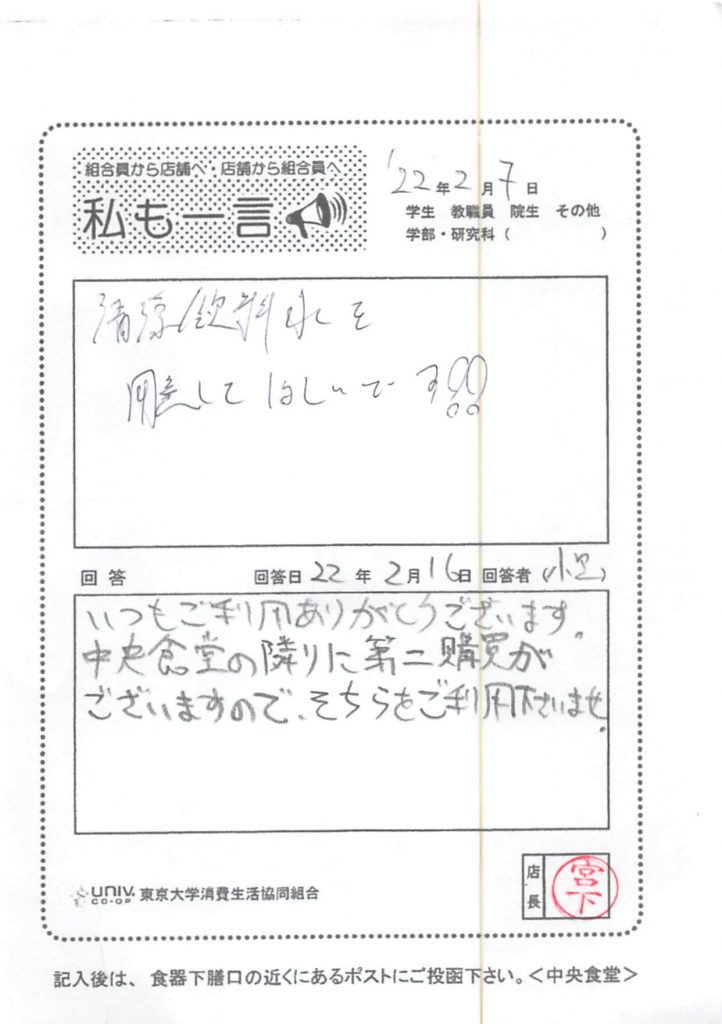 組合員から店舗へ・店舗から組合員へ
私も一言
'22年2月7日
学生 教職員 院生 その他
学部・研究科( )
清涼飲料水を
用意してほしいです!!
回答 回答日 22年 2月16日 回答者
いつもご利用ありがとうございます。
中央食堂の隣りに第二購買が
ございますので、そちらをご利用下さいませ。
店長
宮下
UNIV. CO-OP 東京大学消費生活協同組合
記入後は、食器下膳口の近くにあるポストにご投函下さい。<中央食堂>